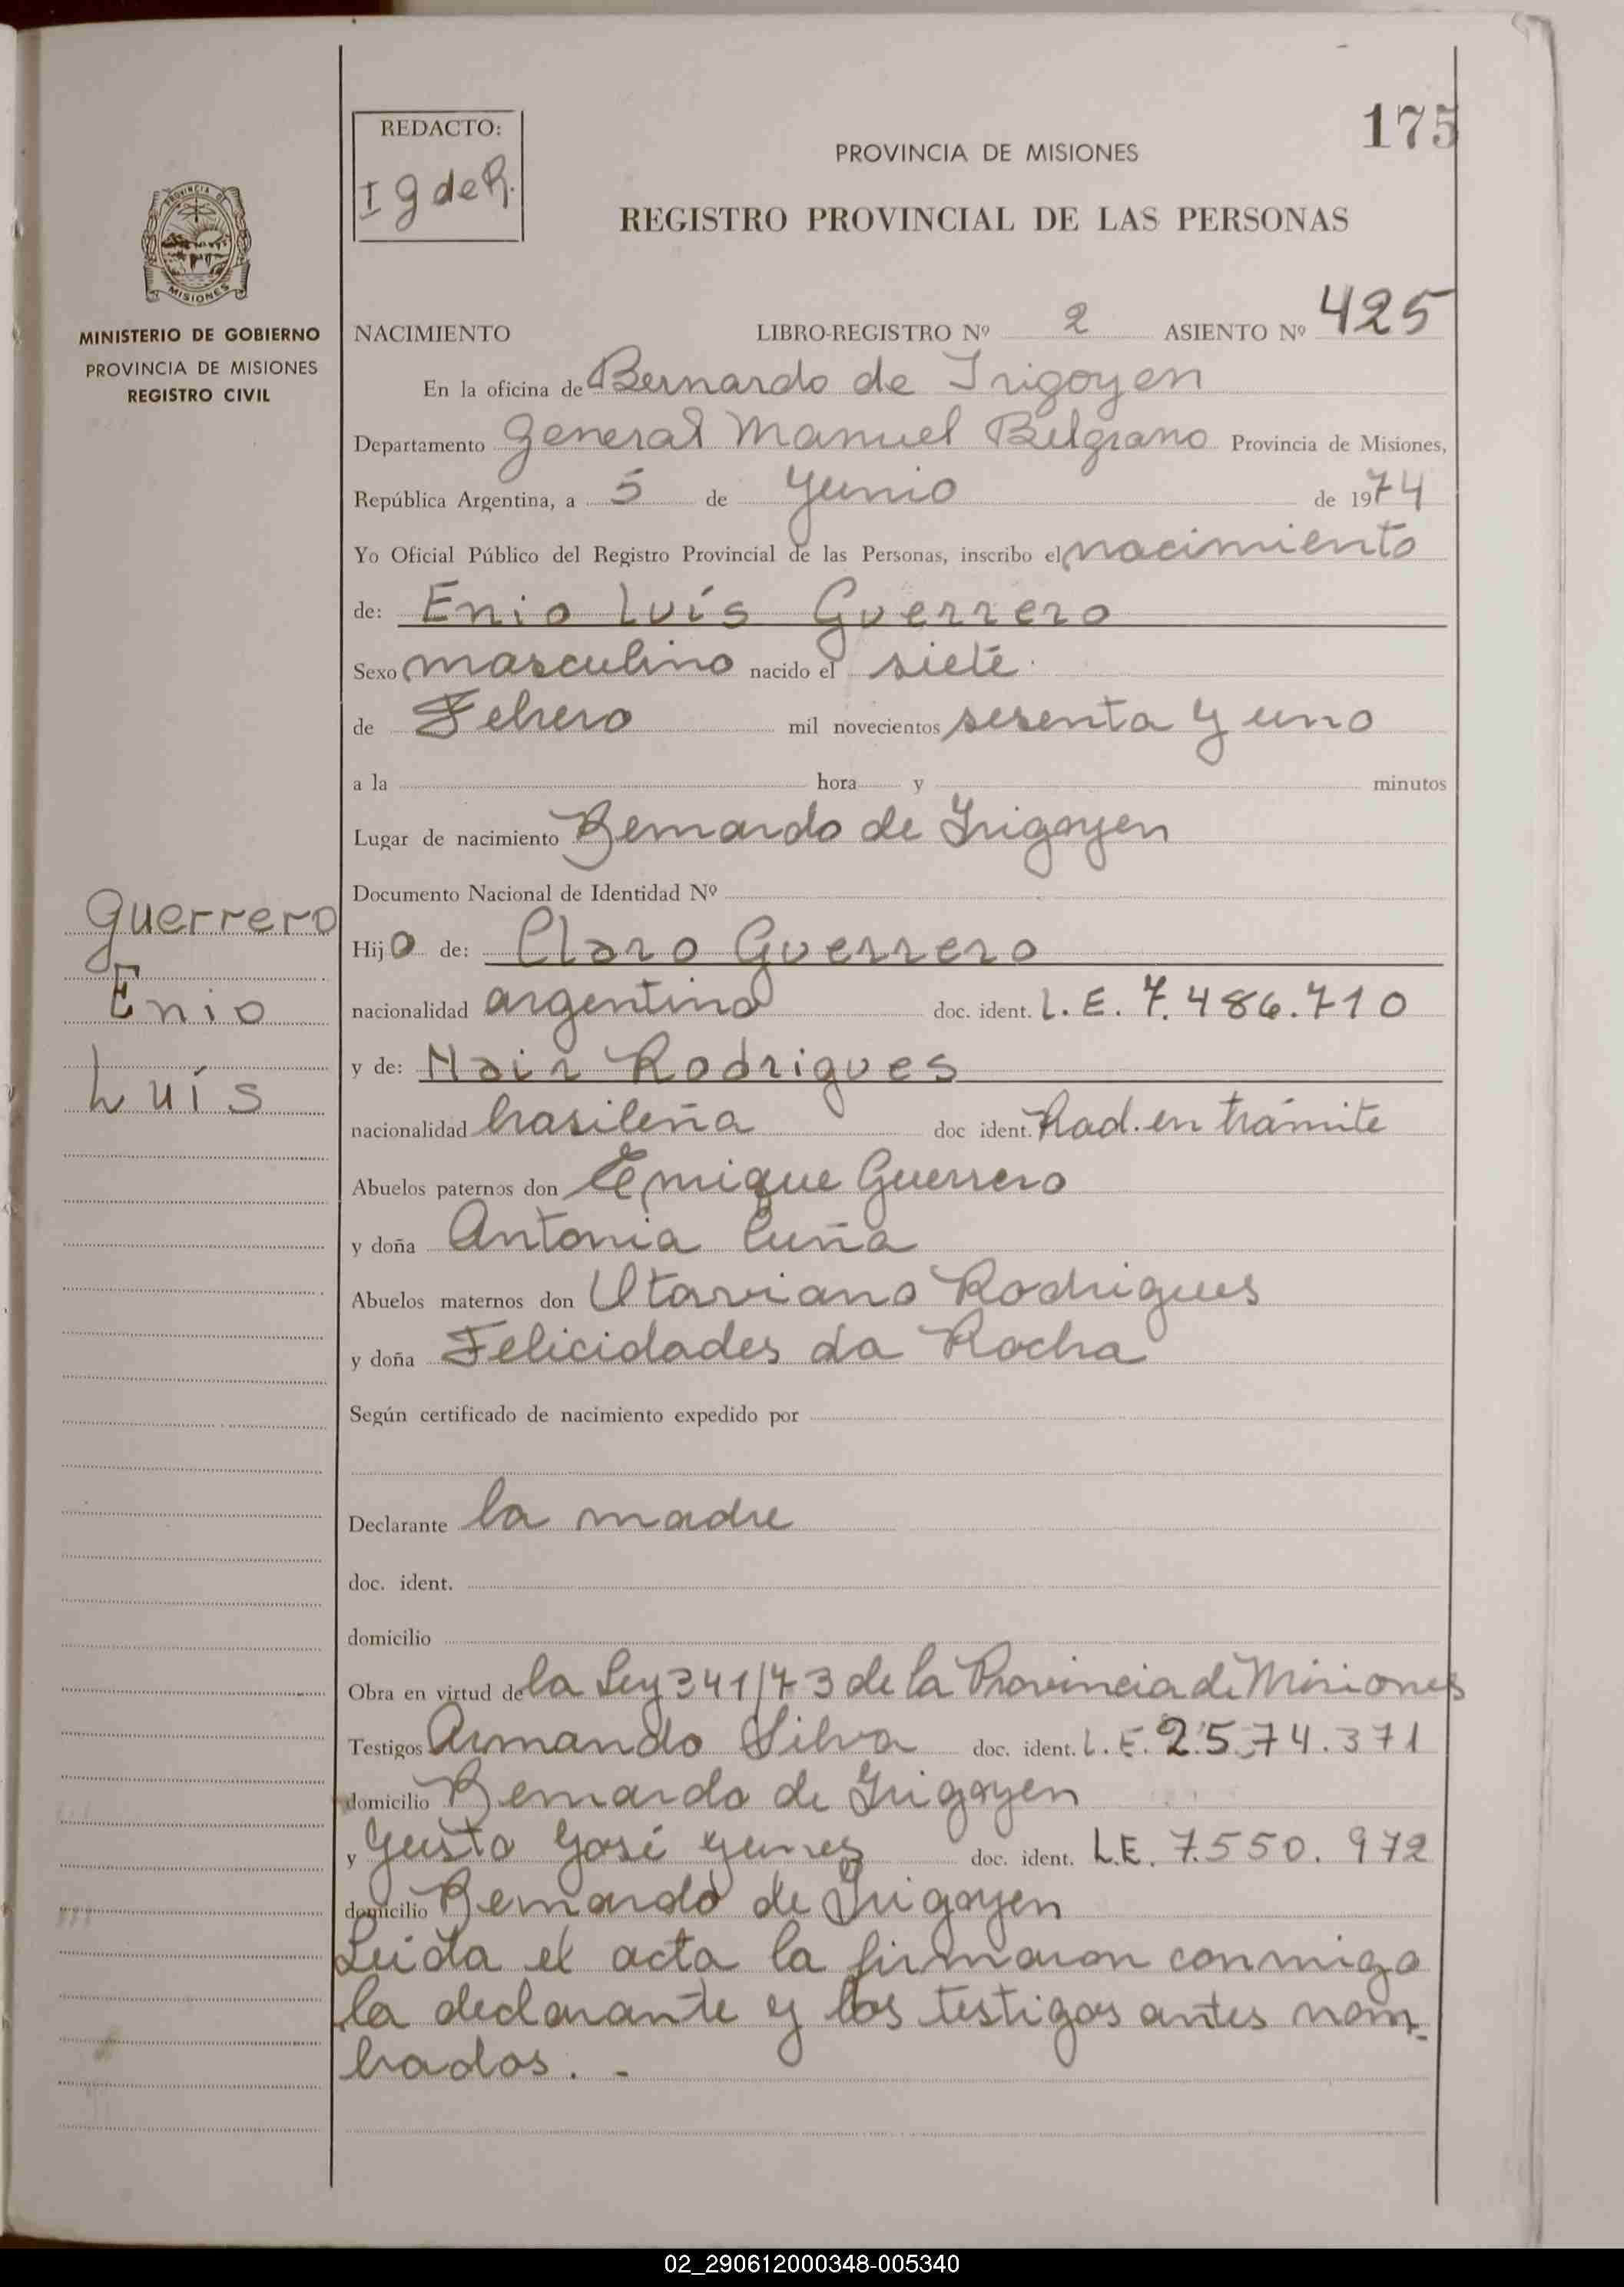 175
REDACTO:
I g de R.
PROVINCIA DE MISIONES
REGISTRO PROVINCIAL DE LAS PERSONAS
PROVINCIA DE
MISIONES
MINISTERIO DE GOBIERNO
PROVINCIA DE MISIONES
REGISTRO CIVIL
NACIMIENTO LIBRO-REGISTRO Nº 2 ASIENTO Nº 425
En la oficina de Bernardo de Irigoyen
Departamento General Manuel Belgrano Provincia de Misiones,
República Argentina, a 5 de Yunio de 1974
Yo Oficial Público del Registro Provincial de las Personas, inscribo el nacimiento
de: Enio Luís Guerrero
Sexo masculino nacido el siete
de Febrero mil novecientos sesenta y uno
a la hora y minutos
Lugar de nacimiento Bernardo de Irigoyen
Documento Nacional de Identidad Nº
Guerrero
Enio
Luís
Hijo de: Claro Guerrero
nacionalidad argentina doc. ident. L.E. 7.486.710
y de: Nair Rodrigues
nacionalidad brasileña doc ident. Rad. en trámite
Abuelos paternos don Enrique Guerrero
y doña Antonia Cuña
Abuelos maternos don Otaviano Rodrigues
y doña Felicidades da Rocha
Según certificado de nacimiento expedido por
Declarante la madre
doc. ident.
domicilio
Obra en virtud de la Ley 341/73 de la Provincia de Misiones
Testigos Armando Silva doc. ident. L.E. 2.574.371
domicilio Bernardo de Irigoyen
y Gusto José doc. ident. L.E. 7.550.972
domicilio Bernardo de Irigoyen
Leida el acta la firmaron conmigo
la declarante y los testigos antes nom-
brados. -
02_290612000348-005340